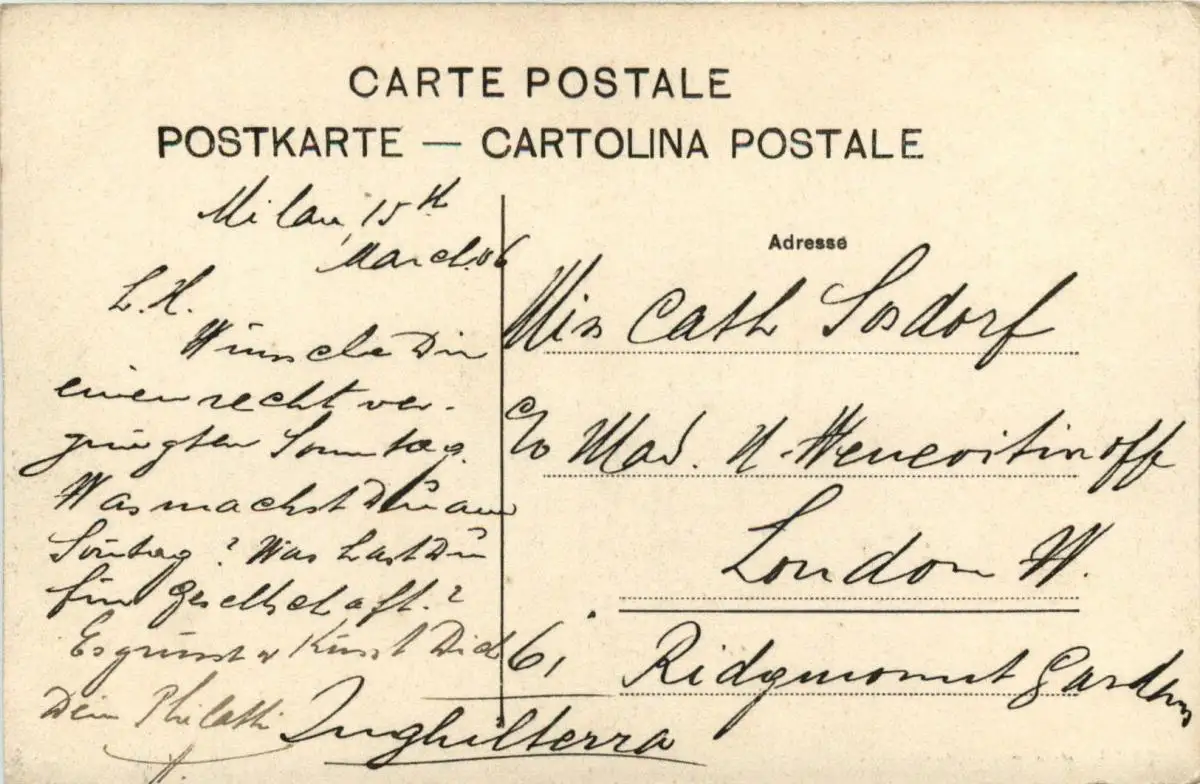 CARTE POSTALE
POSTKARTE — CARTOLINA POSTALE
Milan, 15th
March 06
L. K.
Wünsche Dir
einen recht ver-
gnügten Sonntag.
Was machst Du am
Sonntag? Was hast Du
für Gesellschaft?
Es grüsst u Küsst Dich
Dein
Adresse
Miss Cath Sosdorf
c/o Mad. N. Wenevitinoff
London W.
61, Ridgmount Gardens
Inghilterra